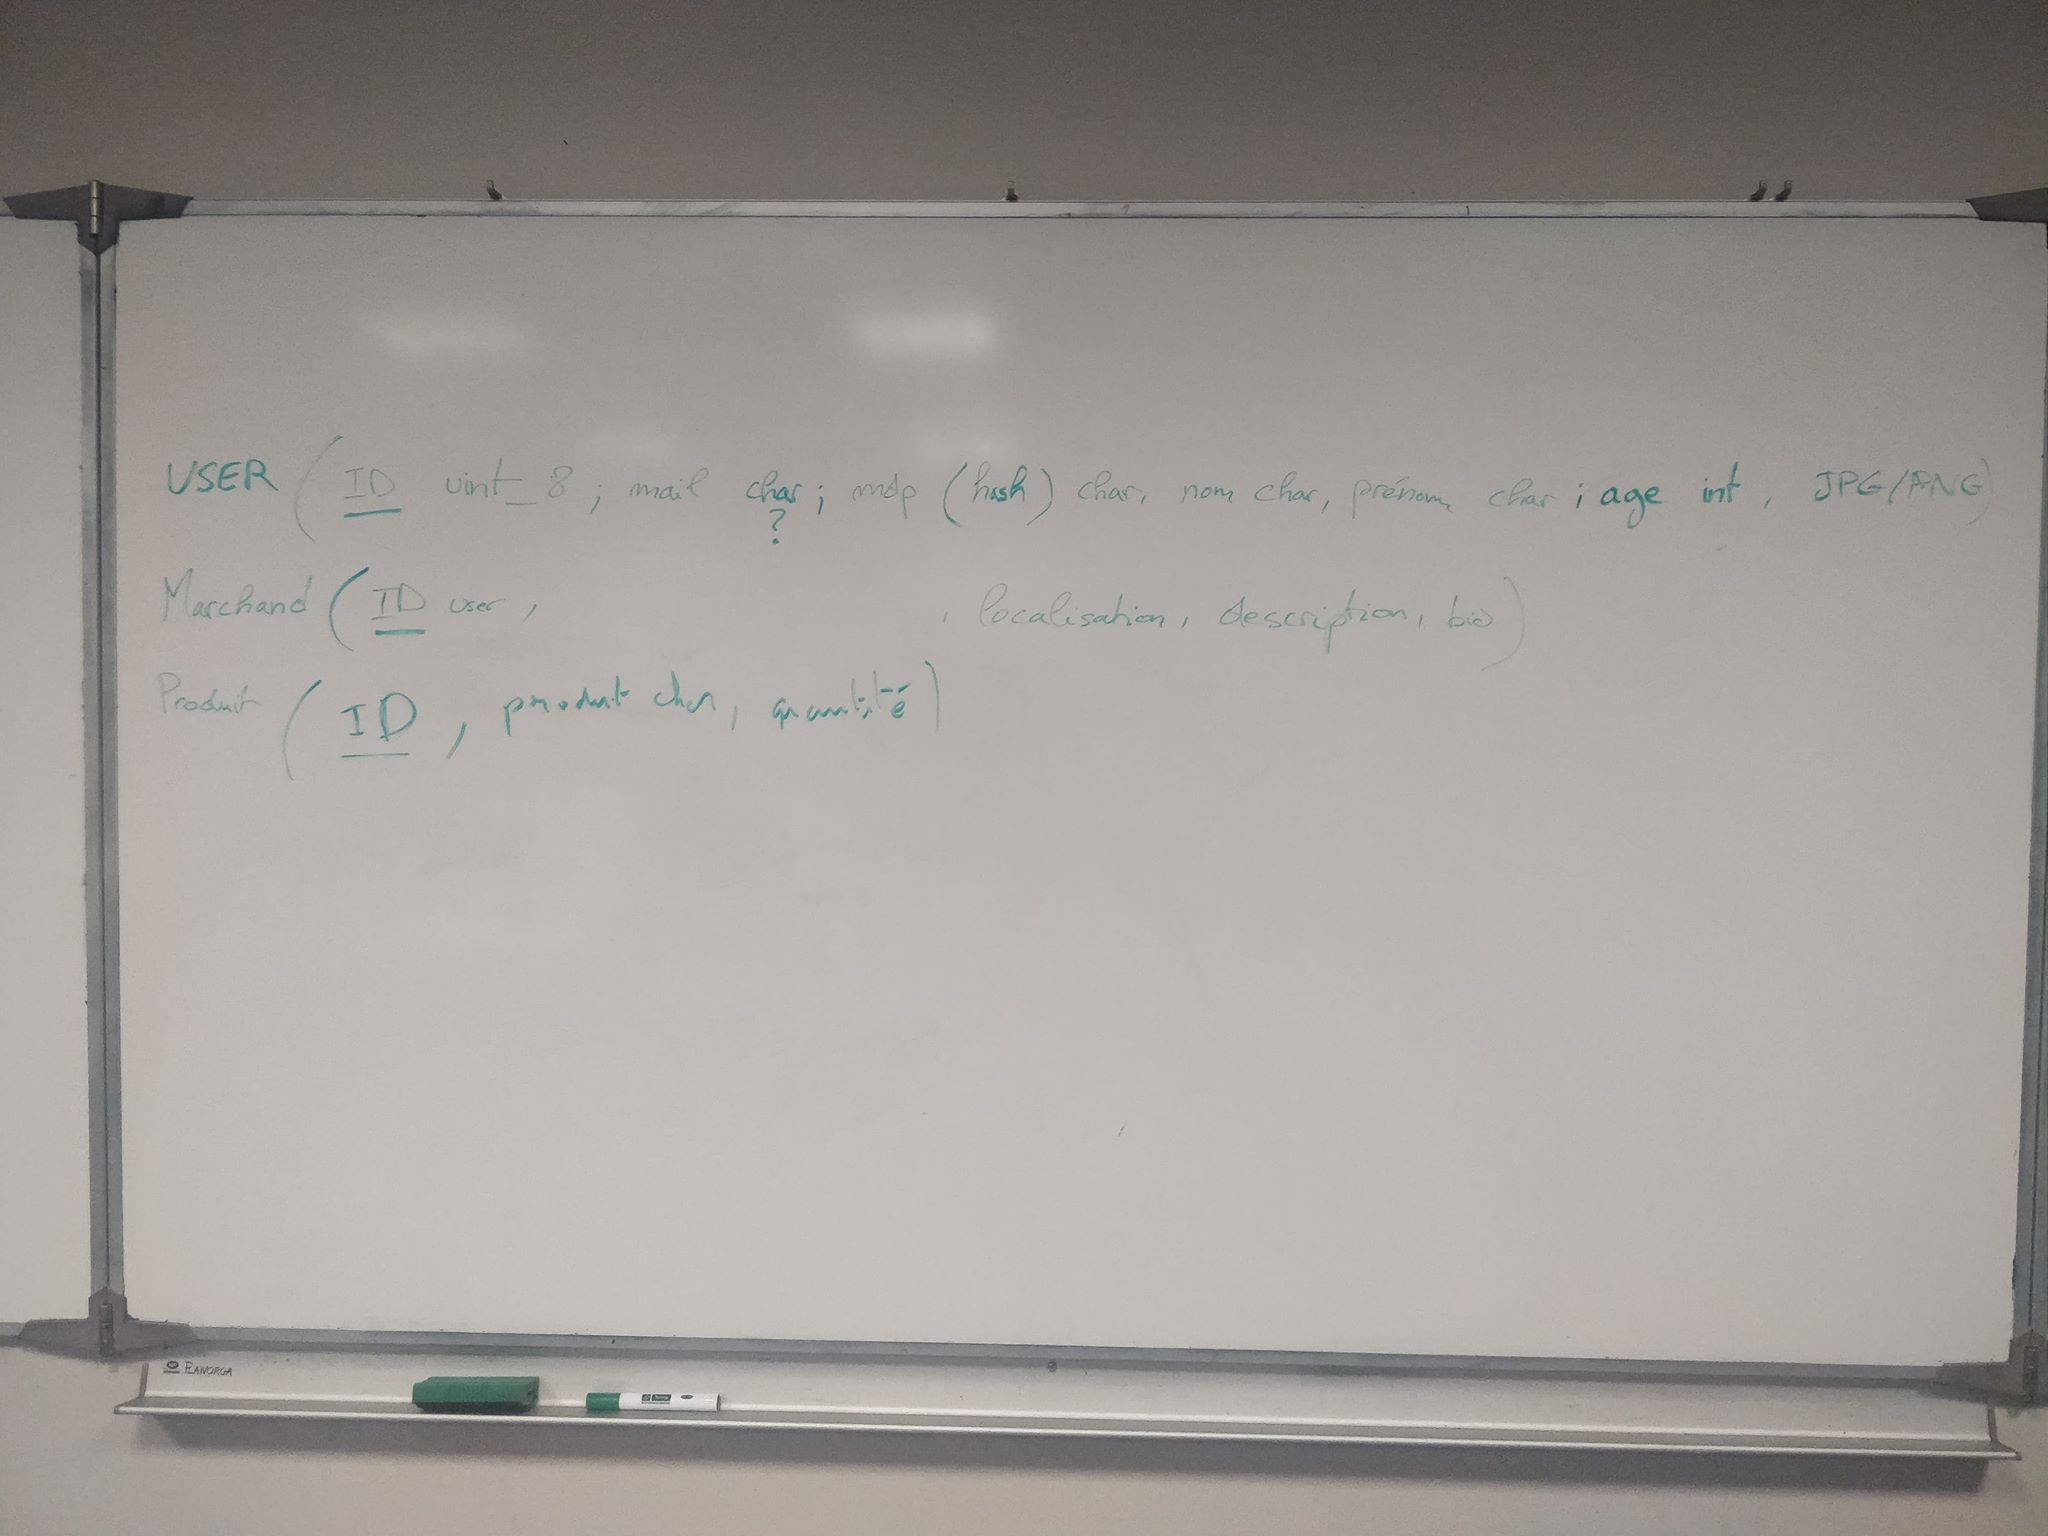 USER (ID uint_8 ; mail char ; mdp (hash) char, nom char, prénom char ; age int, JPG/PNG)
?
Marchand (ID user, , localisation, description, bio)
Produit (ID, produit char, quantité)
PLANORGA